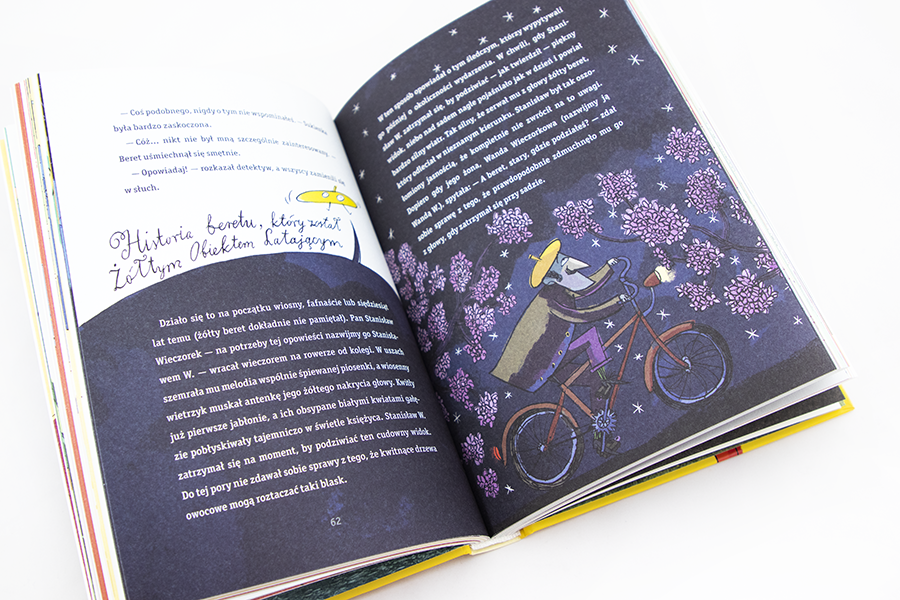 — Coś podobnego, nigdy o tym nie wspominałeś... – Tuikowska
była bardzo zaskoczona.
— Cóż... nikt nie był mną szczególnie zainteresowany. –
Beret uśmiechnął się smętnie.
— Opowiadaj! — rozkazał detektyw, a wszyscy zamienili się
w słuch.
Historia beretu, który został
Żółtym Obiektem Latającym
Działo się to na początku wiosny, fafnaście lub siędziesiąt
lat temu (żółty beret dokładnie nie pamiętał). Pan Stanisław
Wieczorek — na potrzeby tej opowieści nazwijmy go Stanisła-
wem W. — wracał wieczorem na rowerze od kolegi. W uszach
szemrała mu melodia wspólnie śpiewanej piosenki, a wiosenny
wietrzyk muskał antenkę jego żółtego nakrycia głowy. Kwitły
już pierwsze jabłonie, a ich obsypane białymi kwiatami gałę-
zie pobłyskiwały tajemniczo w świetle księżyca. Stanisław W.
zatrzymał się na moment, by podziwiać ten cudowny widok.
Do tej pory nie zdawał sobie sprawy z tego, że kwitnące drzewa
owocowe mogą roztaczać taki blask.
62
W ten sposób opowiadał o tym śledczym, którzy wypytywali
go później o okoliczności wydarzenia. W chwili, gdy Stani-
sław W. zatrzymał się, by podziwiać — jak twierdził — piękny
widok, niebo nad sadem nagle pojaśniało jak w dzień i powiał
bardzo silny wiatr. Tak silny, że zerwał mu z głowy żółty beret,
który odleciał w nieznanym kierunku. Stanisław był tak oszo-
łomiony jasnością, że kompletnie nie zwrócił na to uwagi.
Dopiero gdy jego żona, Wanda Wieczorkowa (nazwijmy ją
Wandą W.), spytała: — A beret, stary, gdzie podziałeś? — zdał
sobie sprawę z tego, że prawdopodobnie zdmuchnęło mu go
z głowy, gdy zatrzymał się przy sadzie.